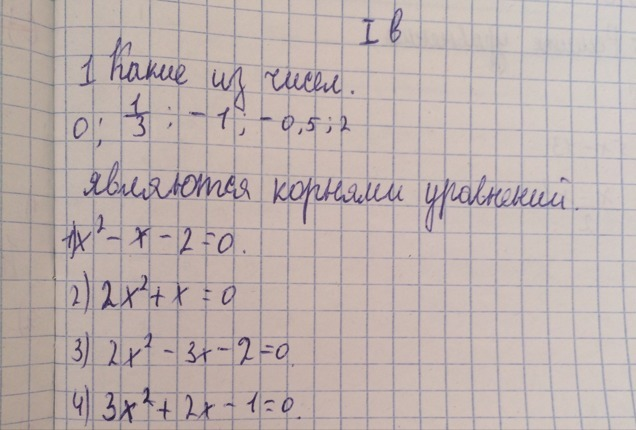 I в
1 Какие из чисел.
0; 1/3; -1; -0,5; 2
являются корнями уравнений.
1) x² - x - 2 = 0.
2) 2x² + x = 0
3) 2x² - 3x - 2 = 0.
4) 3x² + 2x - 1 = 0.